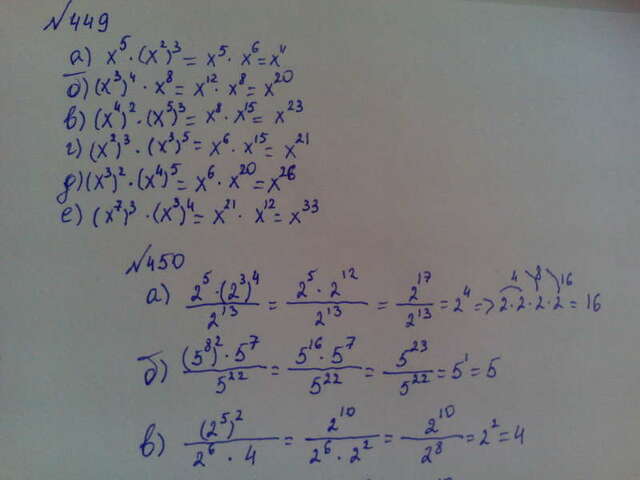 №449
а) x⁵ · (x²)³ = x⁵ · x⁶ = x¹¹
б) (x³)⁴ · x⁸ = x¹² · x⁸ = x²⁰
в) (x⁴)² · (x⁵)³ = x⁸ · x¹⁵ = x²³
г) (x²)³ · (x³)⁵ = x⁶ · x¹⁵ = x²¹
д) (x³)² · (x⁴)⁵ = x⁶ · x²⁰ = x²⁶
е) (x⁷)³ · (x³)⁴ = x²¹ · x¹² = x³³
№450
4 8 16
а) 2⁵ · (2³)⁴ / 2¹³ = 2⁵ · 2¹² / 2¹³ = 2¹⁷ / 2¹³ = 2⁴ => 2 · 2 · 2 · 2 = 16
б) (5⁸)² · 5⁷ / 5²² = 5¹⁶ · 5⁷ / 5²² = 5²³ / 5²² = 5¹ = 5
в) (2⁵)² / 2⁶ · 4 = 2¹⁰ / 2⁶ · 2² = 2¹⁰ / 2⁸ = 2² = 4